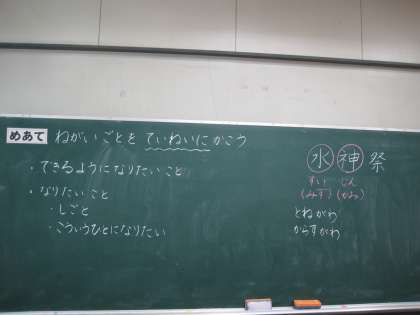 めあて ねがいごとを ていねいに かこう
・できるようになりたいこと
・なりたいこと
・しごと
・こういうひとになりたい
水神祭
すい じん
(みず)(かみ)
とねがわ
からすがわ